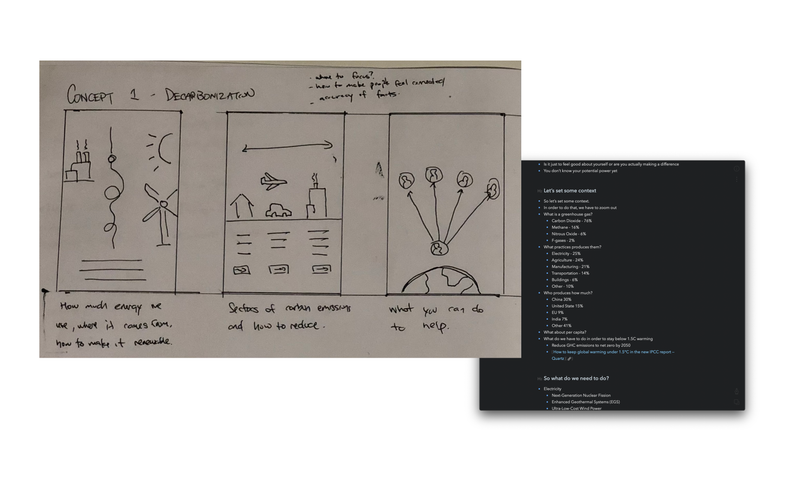 CONCEPT 1 - DECARBONIZATION
- what to focus?
- how to make people feel connected/
- accuracy of facts.
How much energy we
use, where it comes from,
how to make it renewable.
Sectors of carbon emissions
and how to reduce.
What you can do
to help.
Is it just to feel good about yourself or are you actually making a difference
You don't know your potential power yet
Let's set some context
So let's set some context
In order to do that, we have to zoom out
What is a greenhouse gas?
Carbon Dioxide - 76%
Methane - 16%
Nitrous Oxide - 6%
F-gases - 2%
What practices produces them?
Electricity - 25%
Agriculture - 24%
Manufacturing - 21%
Transportation - 14%
Buildings - 6%
Other - 10%
Who produces how much?
China 30%
United States 15%
EU 9%
India 7%
Other 41%
What about per capita?
What do we have to do in order to stay below 1.5C warming
Reduce GHC emissions to net zero by 2050
How to keep global warming under 1.5°C in the new IPCC report —
Quartz
So what do we need to do?
Electricity
Next-Generation Nuclear Fission
Enhanced Geothermal Systems (EGS)
Ultra-Low-Cost Wind Power